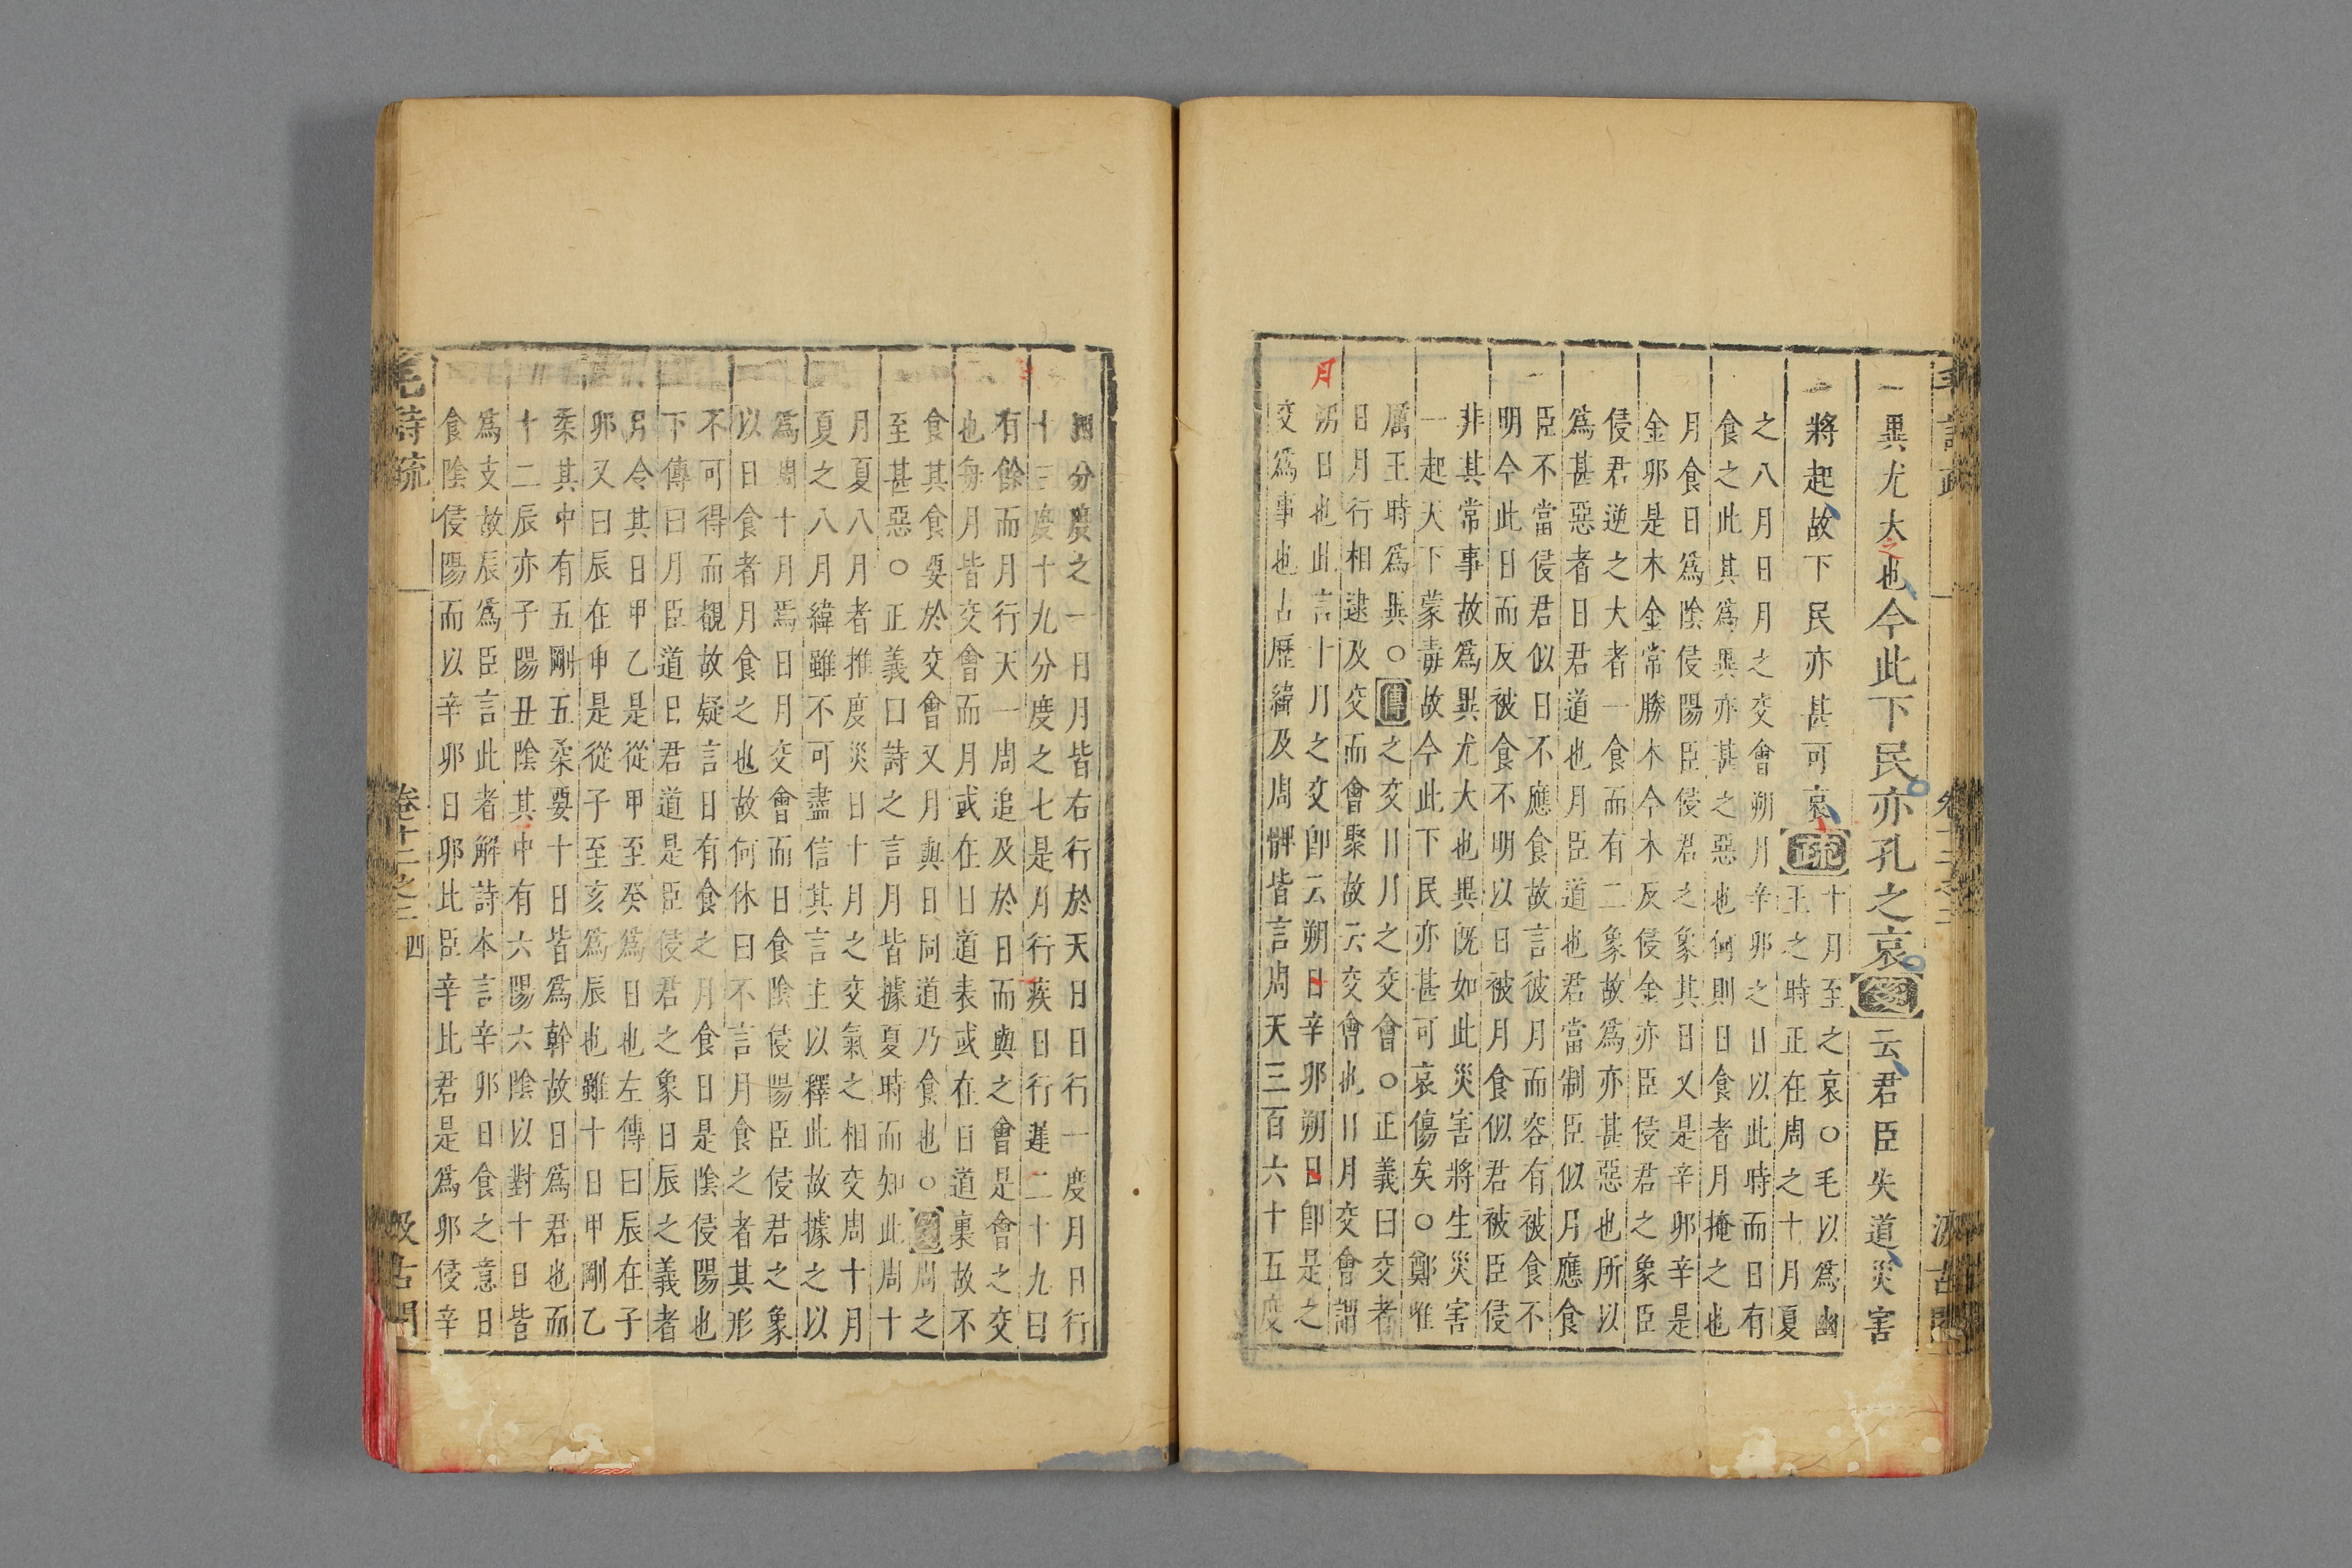 毛詩疏 卷十二之二 汲古閣
異尤大也今此下民亦孔之哀箋云君臣失道災害
之
將起故下民亦甚可哀疏
十月至之哀○毛以爲幽
王之時正在周之十月夏
之八月日月之交會朔月辛卯之日以此時而日有
食之此其爲異亦甚之惡也何則日食者月掩之也
月食日爲陰侵陽臣侵君之象其日又是辛卯辛是
金卯是木金常勝木今木反侵金亦臣侵君之象臣
侵君逆之大者一食而有二象故爲亦甚惡也所以
爲甚惡者日君道也月臣道也君當制臣似月應食
臣不當侵君似日不應食故言彼月而容有被食不
明今此日而反被食不明以日被月食似君被臣侵
非其常事故爲異尤大也異既如此災害將生災害
一起天下蒙毒故今此下民亦甚可哀傷矣○鄭唯
厲王時爲異○傳之交日月之交會○正義曰交者
日月行相逮及交而會聚故云交會也日月交會謂
月
朔日也此言十月之交即云朔日辛卯朔日即是之
交爲事也古歷緯及周髀皆言周天三百六十五度
四分度之一日月皆右行於天日日行一度月日行
十三度十九分度之七是月行疾日行遲二十九日
有餘而月行天一周追及於日而與之會是會之交
也每月皆交會而月或在日道表或在日道裏故不
食其食要於交會又月與日同道乃食也○箋周之
至甚惡○正義曰詩之言月皆據夏時而知此周十
月夏八月者推度災曰十月之交氣之相交周十月
夏之八月緯雖不可盡信其言主以釋此故據之以
爲周十月焉日月交會而日食陰侵陽臣侵君之象
以日食者月食之也故何休曰不言月食之者其形
不可得而覩故疑言日有食之月食日是陰侵陽也
下傳曰月臣道日君道是臣侵君之象日辰之義者
月令其日甲乙是從甲至癸爲日也左傳曰辰在子
卯又曰辰在申是從子至亥爲辰也雖十日甲剛乙
柔其中有五剛五柔要十日皆爲幹故日爲君也而
十二辰亦子陽丑陰其中有六陽六陰以對十日皆
爲支故辰爲臣言此者解詩本言辛卯日食之意日
食陰侵陽而以辛卯日卯比臣辛比君是爲卯侵辛
毛詩疏 卷十二之二 四 汲古閣